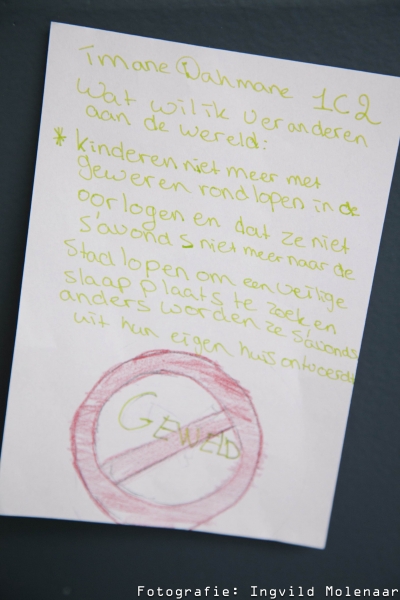 imane Dahmane 1C2
Wat wil ik veranderen
aan de wereld:
* Kinderen niet meer met
geweren rondlopen in de
oorlogen en dat ze niet
s'avonds niet meer naar de
Stad lopen om een veilige
slaap plaats te zoeken
anders worden ze s'avonds
uit hun eigen huis ontvoerd
GEWELD
Fotografie: Ingvild Molenaar